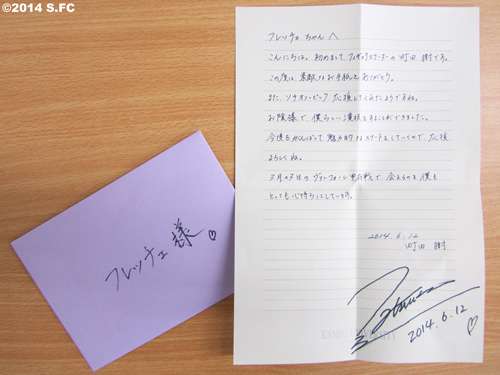 ©2014 S.FC
フレッチェ ちゃんへ
こんにちは、初めまして フィギュアスケーターの町田樹です。
この度は、素敵なお手紙をありがとう。
また、ソチオリンピック 応援してくれたようですね。
お陰様で、僕らしい演技をすることができました。
今後もがんばって魅力的なスケートをしていくので、応援
よろしくね。
月 日の ヴァンフォーレ 戦で、会えるのを 僕も
とっても心待ちにしています。
2014.6.12
町田 樹
2014.6.12
フレッチェ 様